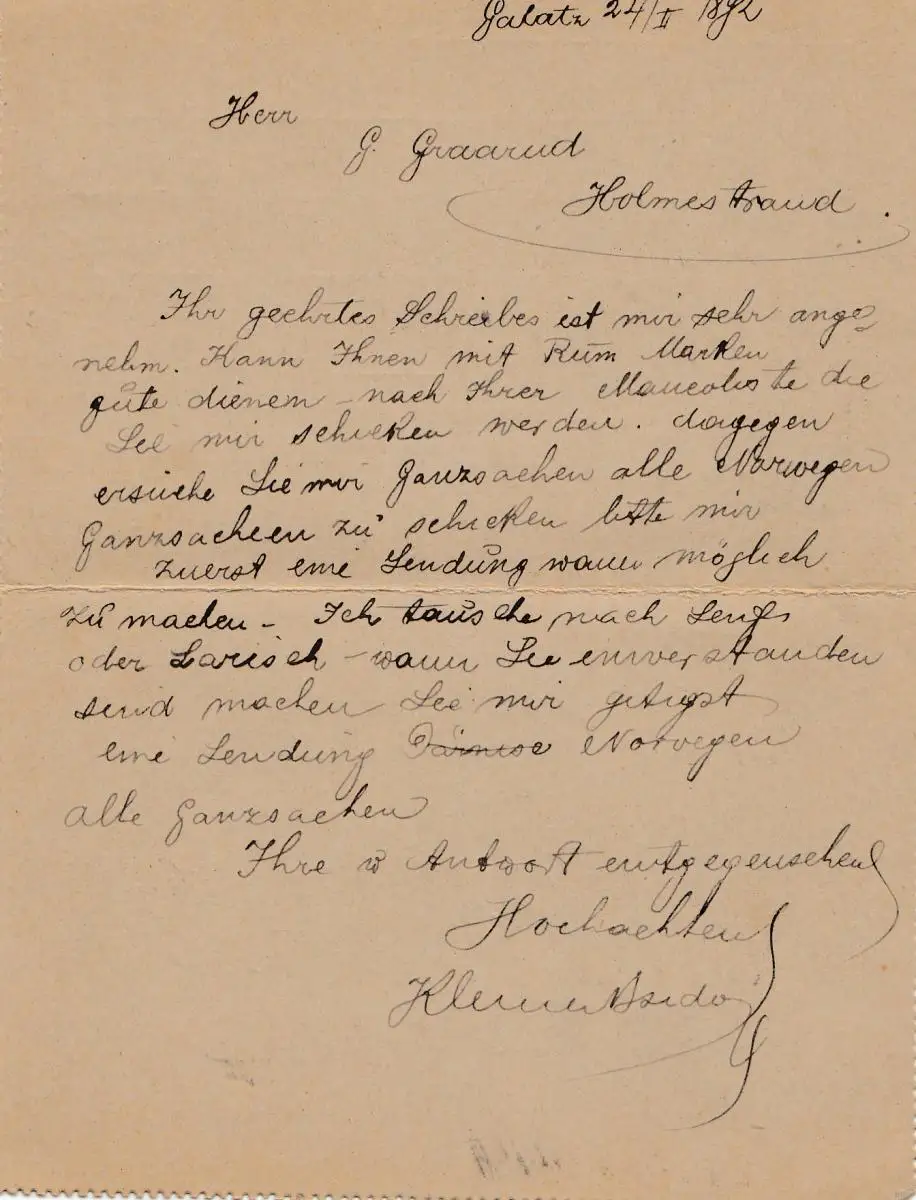 Galatz 24/II 1892
Herr
G. Graarud
Holmestrand.
Ihr geehrtes Schreibes ist mir sehr ange=
nehm. Kann Ihnen mit Rum Marken
gute dienen – nach Ihrer Mancoliste die
Sie mir schicken werden. dagegen
ersuche Sie mir Ganzsachen alle Norwegen
Ganzsacheen zu schicken bitte mir
zuerst eine Sendung wann möglich
zu machen – Ich tausche nach Senfs
oder Larisch – wann Sie einverstanden
sind machen Sie mir
eine Sendung Norvegen
alle Ganzsachen
Ihre w Antwort entgegensehend
Hochachten